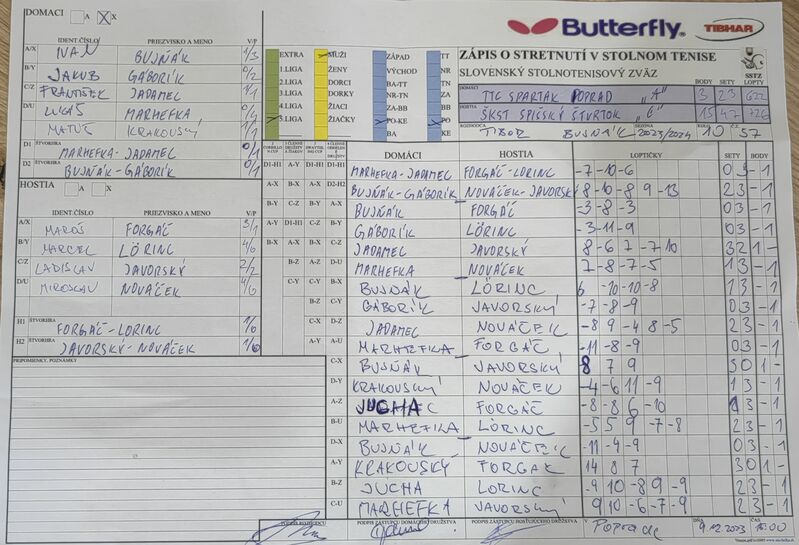 DOMACI A X X
Butterfly TIBHAR
IDENT.ČÍSLO PRIEZVISKO A MENO V/P
A/X IVAN BUJŇÁK 1/3
B/Y JAKUB GÁBORÍK 0/2
C/Z FRANTIŠEK JADAMEL 1/1
D/U LUKÁŠ MARHEFKA 0/4
MATÚŠ KRAKOUSKÝ 1/1
D1 ŠTVORHRA MARHEFKA-JADAMEL 0/1
D2 BUJŇÁK-GÁBORÍK 0/1
EXTRA MUŽI ZÁPAD TT
1.LIGA ŽENY VÝCHOD NR
2.LIGA DORKY BA-TT TN
3.LIGA DORCI NR-TN ZA
4.LIGA ŽIACI ZA-BB BB
5.LIGA ŽIAČKY PO-KE PO
BA KE
ZÁPIS O STRETNUTÍ V STOLNOM TENISE
SLOVENSKÝ STOLNOTENISOVÝ ZVÄZ
SSTZ
BODY SETY LOPTY
DOMÁCI TTC SPARTAK POPRAD "A" 3 23 622
HOSTIA ŠKST SPIŠSKÝ ŠTVRTOK "C" 15 47 726
TIBOR BUJŇÁK 2023/2024 10 57
HOSTIA A X
IDENT.ČÍSLO PRIEZVISKO A MENO V/P
A/X MAROŠ FORGÁČ 3/1
B/Y MARCEL LÖRINC 4/0
C/Z LADISLAV JAVORSKÝ 2/2
D/U MIROSLAV NOVÁČEK 4/0
H1 ŠTVORHRA FORGÁČ-LORINC 1/0
H2 ŠTVORHRA JAVORSKÝ-NOVÁČEK 1/0
PRIPOMIENKY, POZNÁMKY
DOMÁCI HOSTIA LOPTIČKY SETY BODY
D1-H1 MARHEFKA-JADAMEL FORGÁČ-LORINC -7 -10 -6 0 3 -1
D2-H2 BUJŇÁK-GÁBORIK NOVÁČEK-JAVORSKÝ 8 -10 -8 9 -13 2 3 -1
A-X BUJŇÁK FORGÁČ -3 -8 -3 0 3 -1
B-Y GÁBORÍK LÖRINC -3 -11 -9 0 3 -1
C-Z JADAMEL JAVORSKÝ 8 -6 7 -7 10 3 2 1 -
D-U MARHEFKA NOVÁČEK 7 -8 -7 -5 1 3 -1
B-X BUJŇÁK LÖRINC 6 -10 -10 -8 1 3 -1
GÁBORÍK JAVORSKÝ -7 -8 -9 0 3 -1
JADAMEL NOVÁČEK -8 9 -4 8 -5 2 3 -1
MARHEFKA FORGÁČ -11 -8 -9 0 3 -1
C-X BUJŇÁK JAVORSKÝ 8 7 9 3 0 1 -
D-Y KRAKOUSKÝ NOVÁČEK -4 -6 11 -9 1 3 -1
A-Z JUCHA FORGÁČ -8 -8 6 -10 1 3 -1
B-U MARHEFKA LÖRINC -5 5 9 -7 -8 2 3 -1
D-X BUJŇÁK NOVÁČEIK -11 -4 -9 0 3 -1
A-Y KRAKOUSKÝ FORGAČ 14 8 7 3 0 1 -
B-Z JUCHA LORINC -9 10 -8 9 -9 2 3 -1
C-U MARHEFKA JAVORSKÝ 9 10 -6 -7 -9 2 3 -1
PODPIS ROZHODCU PODPIS ZÁSTUPCU DOMÁCEHO DRUŽSTVA PODPIS ZÁSTUPCU HOSŤUJÚCEHO DRUŽSTVA V Poprade DŇA 9.12.2023 ČAS